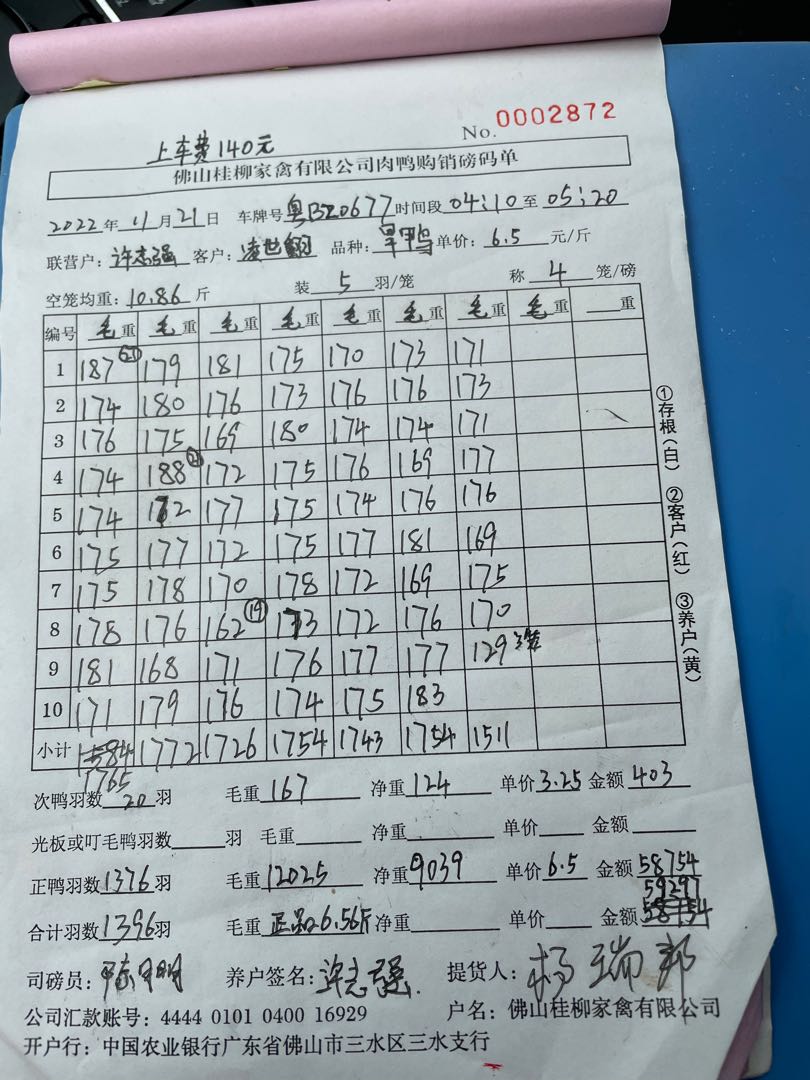 No. 0002872
上车费140元
佛山桂柳家禽有限公司肉鸭购销磅码单
2022年11月21日 车牌号粤BZ0677时间段04:10至05:20
联营户：许志强 客户：凌世翻 品种：旱鸭 单价：6.5 元/斤
空笼均重：10.86 斤 装 5 羽/笼 称 4 笼/磅
编号 毛重 毛重 毛重 毛重 毛重 毛重 毛重 毛重 重
1 187 (21) 179 181 175 170 173 171
2 174 180 176 173 176 176 173
3 176 175 169 180 174 174 171
4 174 188 (21) 172 175 176 169 177
5 174 172 177 175 174 176 176
6 175 177 172 175 177 181 169
7 175 178 170 178 172 169 175
8 178 176 162 (19) 173 172 176 170
9 181 168 171 176 177 177 129 3笼
10 171 179 176 174 175 183
小计 1584 1772 1726 1754 1743 1754 1511
1765
①存根（白） ②客户（红） ③养户（黄）
次鸭羽数 20 羽 毛重 167 净重 124 单价 3.25 金额 403
光板或叮毛鸭羽数 羽 毛重 净重 单价 金额
正鸭羽数 1376 羽 毛重 12025 净重 9039 单价 6.5 金额 58754
59297
合计羽数 1396 羽 毛重 正品6.56斤 净重 单价 金额 58154
司磅员： 养户签名：许志强. 提货人：杨瑞邦
公司汇款账号：4444 0101 0400 16929 户名：佛山桂柳家禽有限公司
开户行：中国农业银行广东省佛山市三水区三水支行